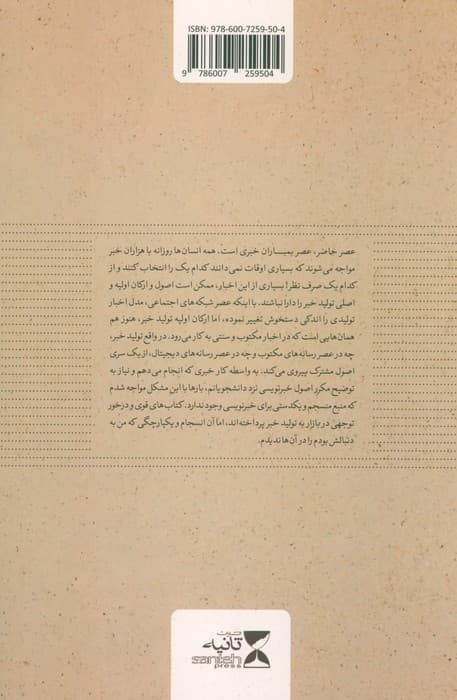 ISBN: 978-600-7259-50-4
9 786007 259504
عصر حاضر، عصر بمباران خبری است. همه انسان‌ها روزانه با هزاران خبر
مواجه می‌شوند که بسیاری اوقات نمی‌دانند کدام یک را انتخاب کنند و از
کدام یک صرف نظر! بسیاری از این اخبار، ممکن است اصول و ارکان اولیه و
اصلی تولید خبر را دارا نباشند. با اینکه عصر شبکه‌های اجتماعی، مدل اخبار
تولیدی را اندکی دستخوش تغییر نموده، اما ارکان اولیه تولید خبر، هنوز هم
همان‌هایی است که در اخبار مکتوب و سنتی به کار می‌رود. در واقع تولید خبر،
چه در عصر رسانه‌های مکتوب و چه در عصر رسانه‌های دیجیتال، از یک سری
اصول مشترک پیروی می‌کند. به واسطه کار خبری که انجام می‌دهم و نیاز به
توضیح مکرر اصول خبرنویسی نزد دانشجویانم، بارها با این مشکل مواجه شدم
که منبع منسجم و یکدستی برای خبرنویسی وجود ندارد. کتاب‌های قوی و درخور
توجهی در بازار به تولید خبر پرداخته‌اند، اما آن انسجام و یکپارچگی که من به
دنبالش بودم را در آن‌ها ندیدم.
ثانیه
saniyeh
press